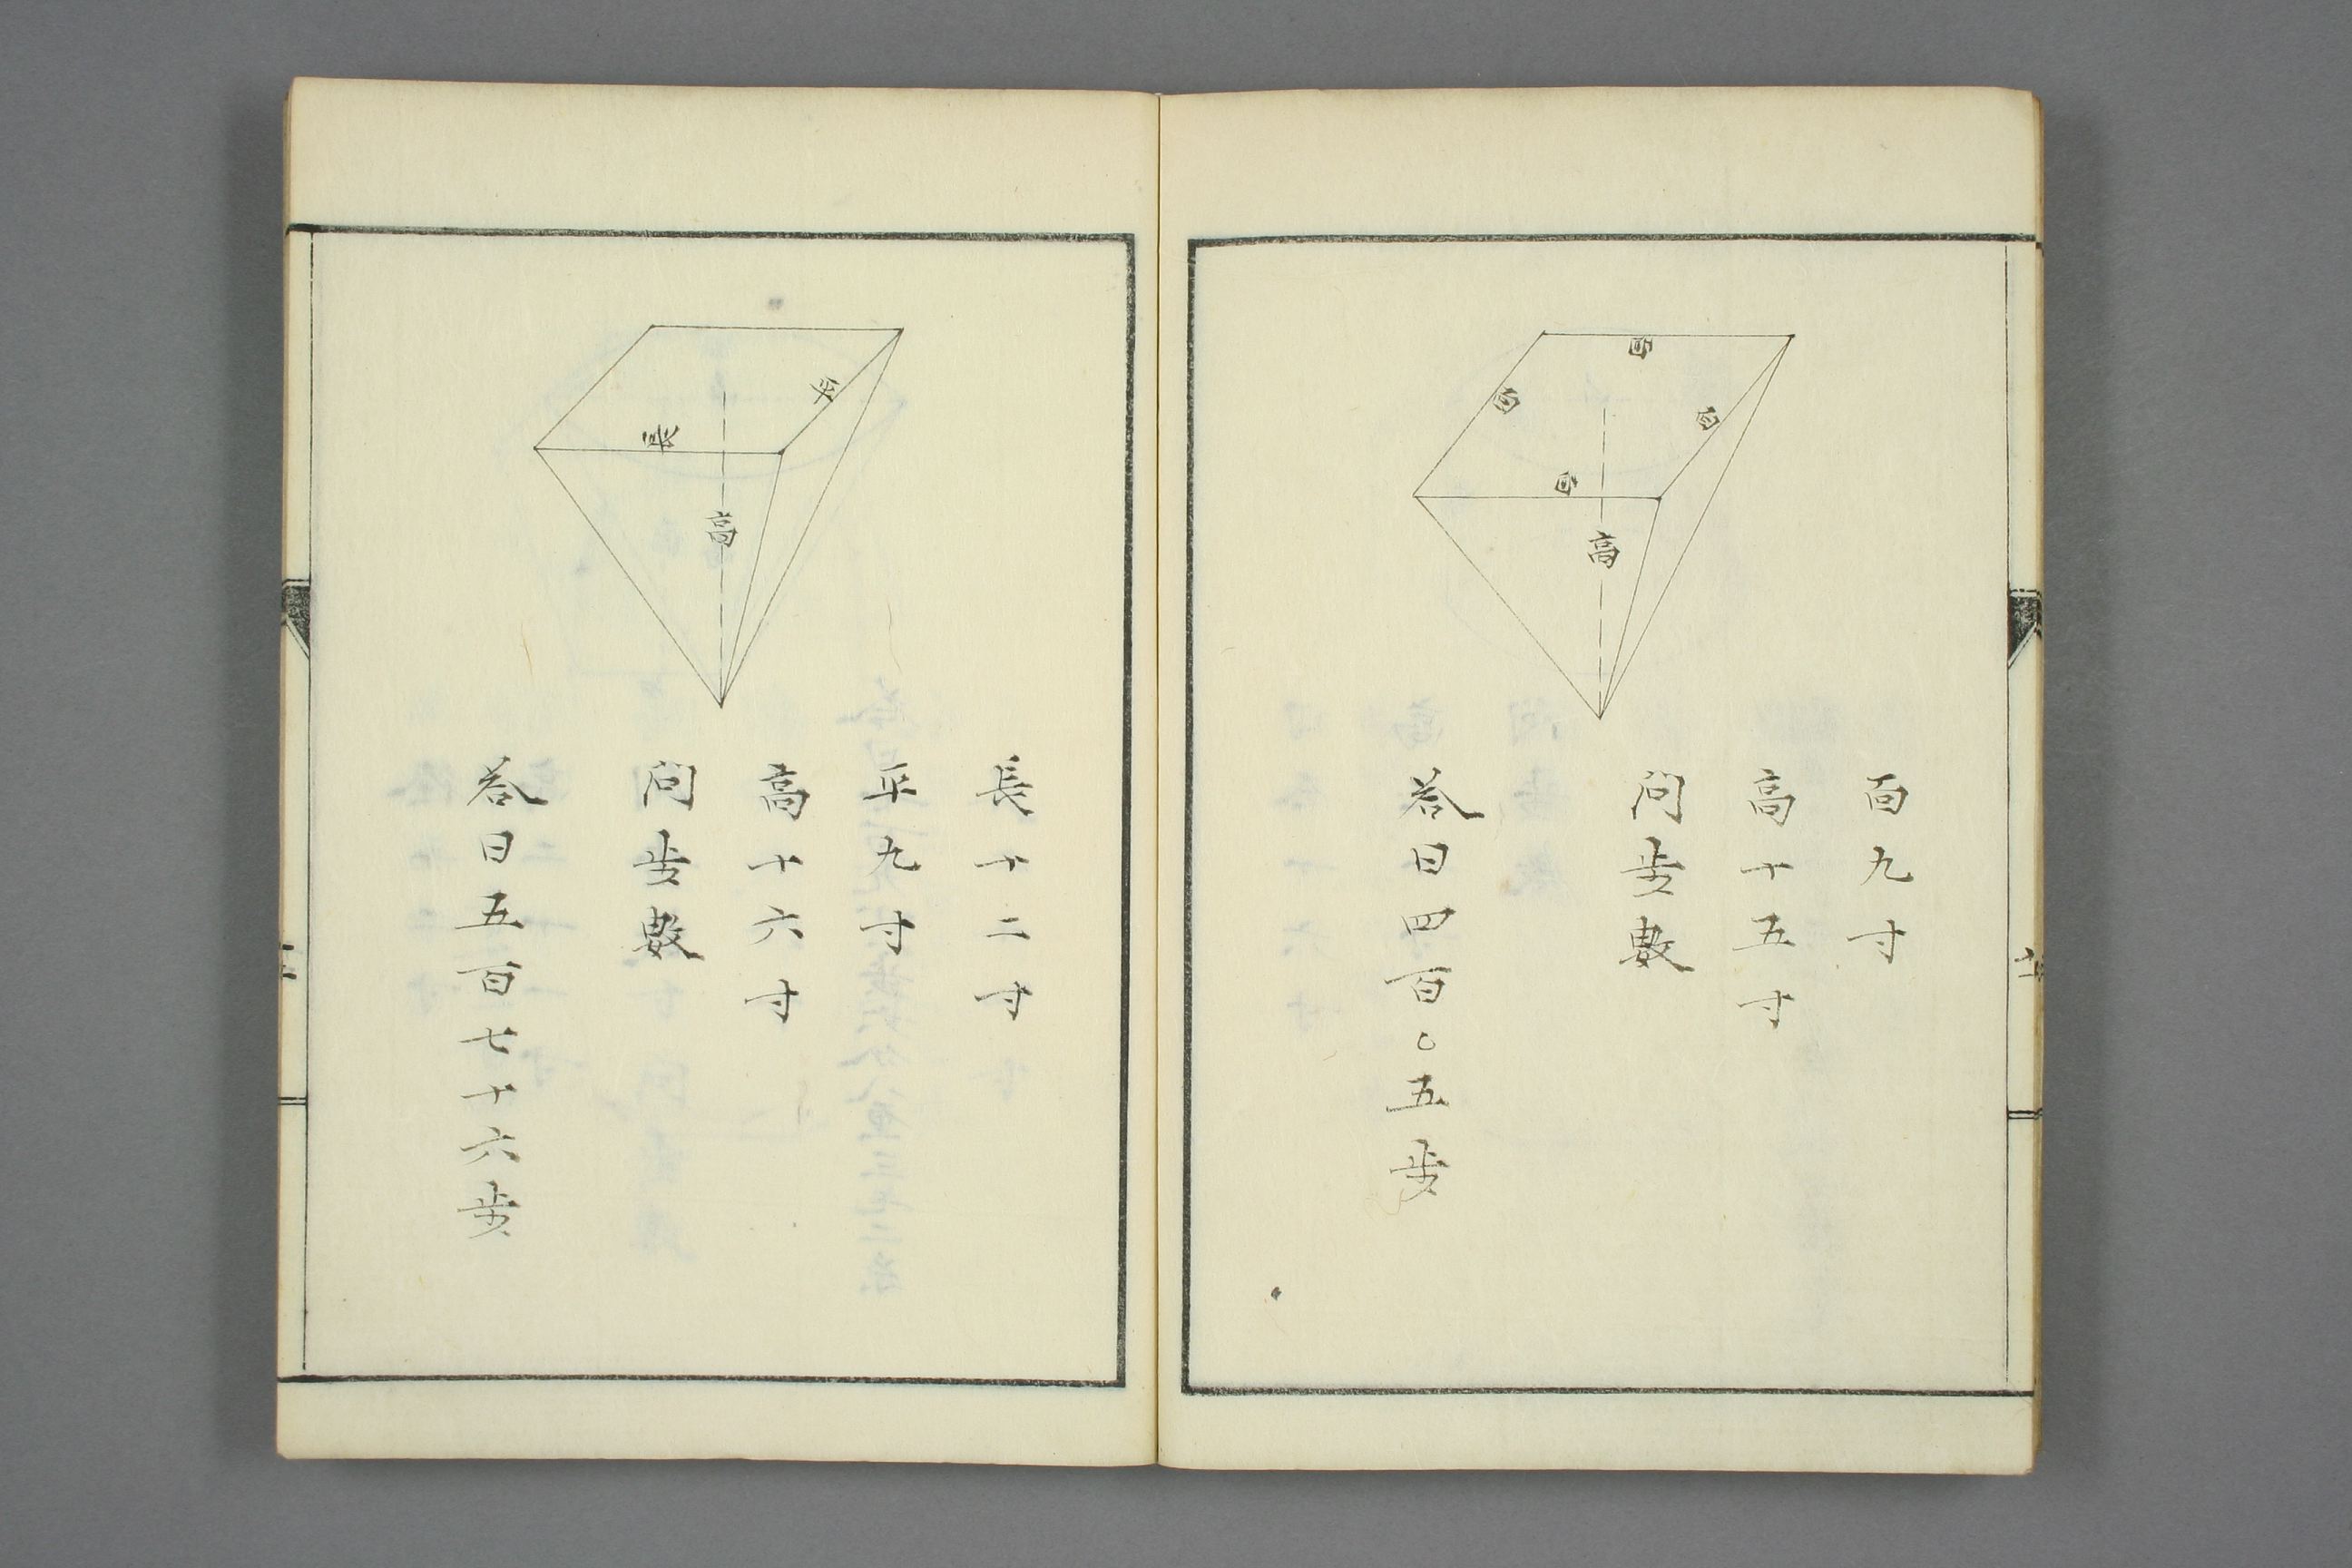 面
面
面
面
高
面九寸
高十五寸
問歩數
答曰四百〇五歩
平
長
高
長十二寸
平九寸
高十六寸
問歩數
答曰五百七十六歩